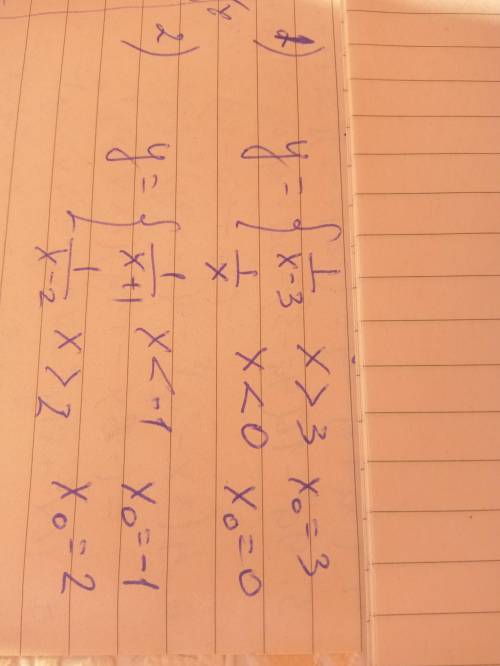 1) y = { 1/(x-3) x > 3 x₀ = 3
1/x x < 0 x₀ = 0
2) y = { 1/(x+1) x < -1 x₀ = -1
1/(x-2) x > 2 x₀ = 2